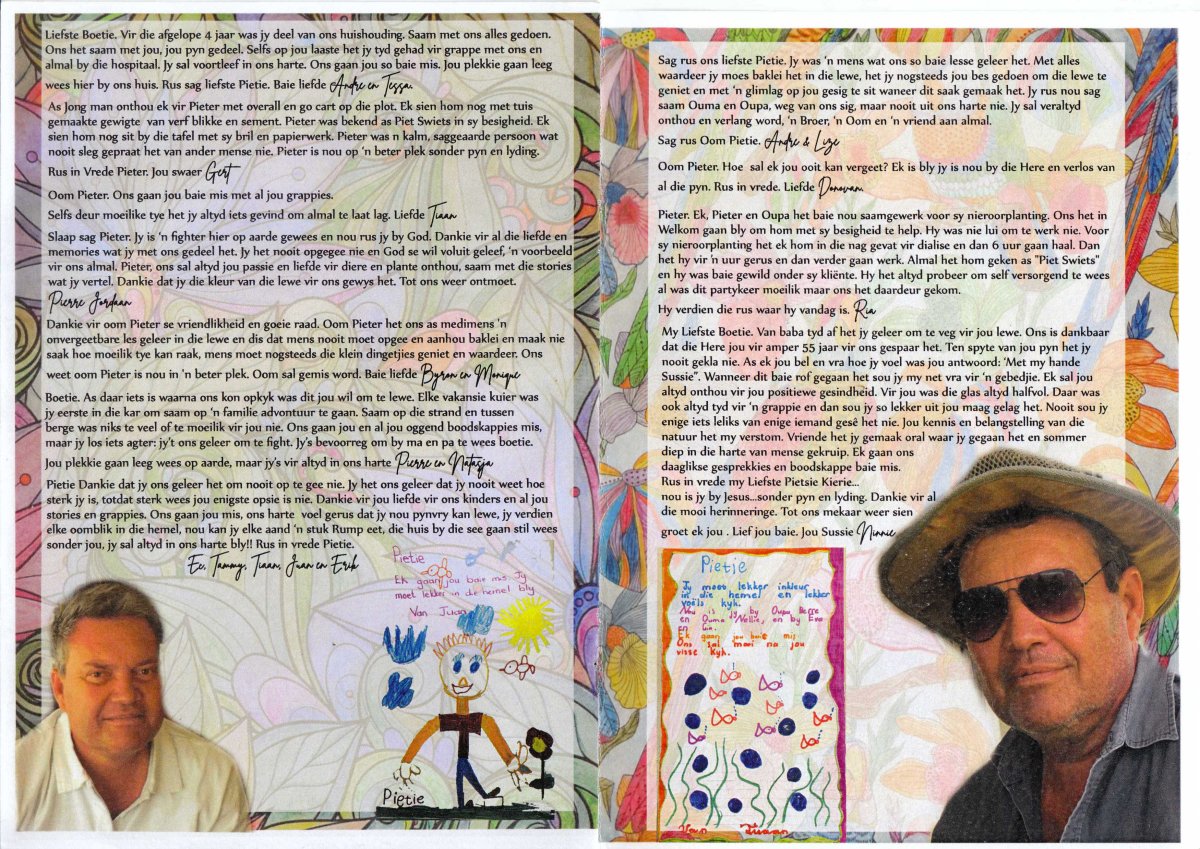 Liefste Boetie. Vir die afgelope 4 jaar was jy deel van ons huishouding. Saam met ons alles gedoen.
Ons het saam met jou, jou pyn gedeel. Selfs op jou laaste het jy tyd gehad vir grappe met ons en
almal by die hospitaal. Jy sal voortleef in ons harte. Ons gaan jou so baie mis. Jou plekkie gaan leeg
wees hier by ons huis. Rus sag liefste Pietie. Baie liefde Andre en Tessa.
As Jong man onthou ek vir Pieter met overall en go cart op die plot. Ek sien hom nog met tuis
gemaakte gewigte van verf blikke en sement. Pieter was bekend as Piet Swiets in sy besigheid. Ek
sien hom nog sit by die tafel met sy bril en papierwerk. Pieter was n kalm, saggeaarde persoon wat
nooit sleg gepraat het van ander mense nie. Pieter is nou op ‘n beter plek sonder pyn en lyding.
Rus in Vrede Pieter. Jou swaer Gert
Oom Pieter. Ons gaan jou baie mis met al jou grappies.
Selfs deur moeilike tye het jy altyd iets gevind om almal te laat lag. Liefde Tiaan
Slaap sag Pieter. Jy is ‘n fighter hier op aarde gewees en nou rus jy by God. Dankie vir al die liefde en
memories wat jy met ons gedeel het. Jy het nooit opgegee nie en God se wil voluit geleef, ‘n voorbeeld
vir ons almal. Pieter, ons sal altyd jou passie en liefde vir diere en plante onthou, saam met die stories
wat jy vertel. Dankie dat jy die kleur van die lewe vir ons gewys het. Tot ons weer ontmoet.
Pierre Jordaan
Dankie vir oom Pieter se vriendlikheid en goeie raad. Oom Pieter het ons as medimens 'n
onvergeetbare les geleer in die lewe en dis dat mens nooit moet opgee en aanhou baklei en maak nie
saak hoe moeilik tye kan raak, mens moet nogsteeds die klein dingetjies geniet en waardeer. Ons
weet oom Pieter is nou in 'n beter plek. Oom sal gemis word. Baie liefde Byron en Monique
Boetie. As daar iets is waarna ons kon opkyk was dit jou wil om te lewe. Elke vakansie kuier was
jy eerste in die kar om saam op ‘n familie advontuur te gaan. Saam op die strand en tussen
berge was niks te veel of te moeilik vir jou nie. Ons gaan jou en al jou oggend boodskappies mis,
maar jy los iets agter: jy’t ons geleer om te fight. Jy’s bevoorreg om by ma en pa te wees boetie.
Jou plekkie gaan leeg wees op aarde, maar jy’s vir altyd in ons harte Pierre en Natasja
Pietie Dankie dat jy ons geleer het om nooit op te gee nie. Jy het ons geleer dat jy nooit weet hoe
sterk jy is, totdat sterk wees jou enigste opsie is nie. Dankie vir jou liefde vir ons kinders en al jou
stories en grappies. Ons gaan jou mis, ons harte voel gerus dat jy nou pynvry kan lewe, jy verdien
elke oomblik in die hemel, nou kan jy elke aand ‘n stuk Rump eet, die huis by die see gaan stil wees
sonder jou, jy sal altyd in ons harte bly!! Rus in vrede Pietie.
Ec, Tammy, Tiaan, Juan en Erik
Pietie
Ek gaan jou baie mis Jy
moet lekker in die hemel bly
Van Juan
Pietie
Sag rus ons liefste Pietie. Jy was ‘n mens wat ons so baie lesse geleer het. Met alles
waardeer jy moes baklei het in die lewe, het jy nogsteeds jou bes gedoen om die lewe te
geniet en met ‘n glimlag op jou gesig te sit waneer dit saak gemaak het. Jy rus nou sag
saam Ouma en Oupa, weg van ons sig, maar nooit uit ons harte nie. Jy sal veraltyd
onthou en verlang word, ‘n Broer, ‘n Oom en ‘n vriend aan almal.
Sag rus Oom Pietie. Andre & Lize
Oom Pieter. Hoe sal ek jou ooit kan vergeet? Ek is bly jy is nou by die Here en verlos van
al die pyn. Rus in vrede. Liefde Donovan.
Pieter. Ek, Pieter en Oupa het baie nou saamgewerk voor sy nieroorplanting. Ons het in
Welkom gaan bly om hom met sy besigheid te help. Hy was nie lui om te werk nie. Voor
sy nieroorplanting het ek hom in die nag gevat vir dialise en dan 6 uur gaan haal. Dan
het hy vir ’n uur gerus en dan verder gaan werk. Almal het hom geken as "Piet Swiets"
en hy was baie gewild onder sy kliënte. Hy het altyd probeer om self versorgend te wees
al was dit partykeer moeilik maar ons het daardeur gekom.
Hy verdien die rus waar hy vandag is. Ria
My Liefste Boetie. Van baba tyd af het jy geleer om te veg vir jou lewe. Ons is dankbaar
dat die Here jou vir amper 55 jaar vir ons gespaar het. Ten spyte van jou pyn het jy
nooit gekla nie. As ek jou bel en vra hoe jy voel was jou antwoord: ‘Met my hande
Sussie”. Wanneer dit baie rof gegaan het sou jy my net vra vir ‘n gebedjie. Ek sal jou
altyd onthou vir jou positiewe gesindheid. Vir jou was die glas altyd halfvol. Daar was
ook altyd tyd vir ‘n grappie en dan sou jy so lekker uit jou maag gelag het. Nooit sou jy
enige iets leliks van enige iemand gesê het nie. Jou kennis en belangstelling van die
natuur het my verstom. Vriende het jy gemaak oral waar jy gegaan het en sommer
diep in die harte van mense gekruip. Ek gaan ons
daaglikse gesprekkies en boodskappe baie mis.
Rus in vrede my Liefste Pietsie Kierie...
nou is jy by Jesus...sonder pyn en lyding. Dankie vir al
die mooi herinneringe. Tot ons mekaar weer sien
groet ek jou . Lief jou baie. Jou Sussie Ninnie
Pietie
Jy moet lekker inkleur
in die hemel en lekker
voëls kyk.
Nou is jy by Oupa Pierre
en Ouma Nellie, en by Eva
en Gia.
Ek gaan jou baie mis
Ons sal mooi na jou
visse kyk.
Van Tiaan